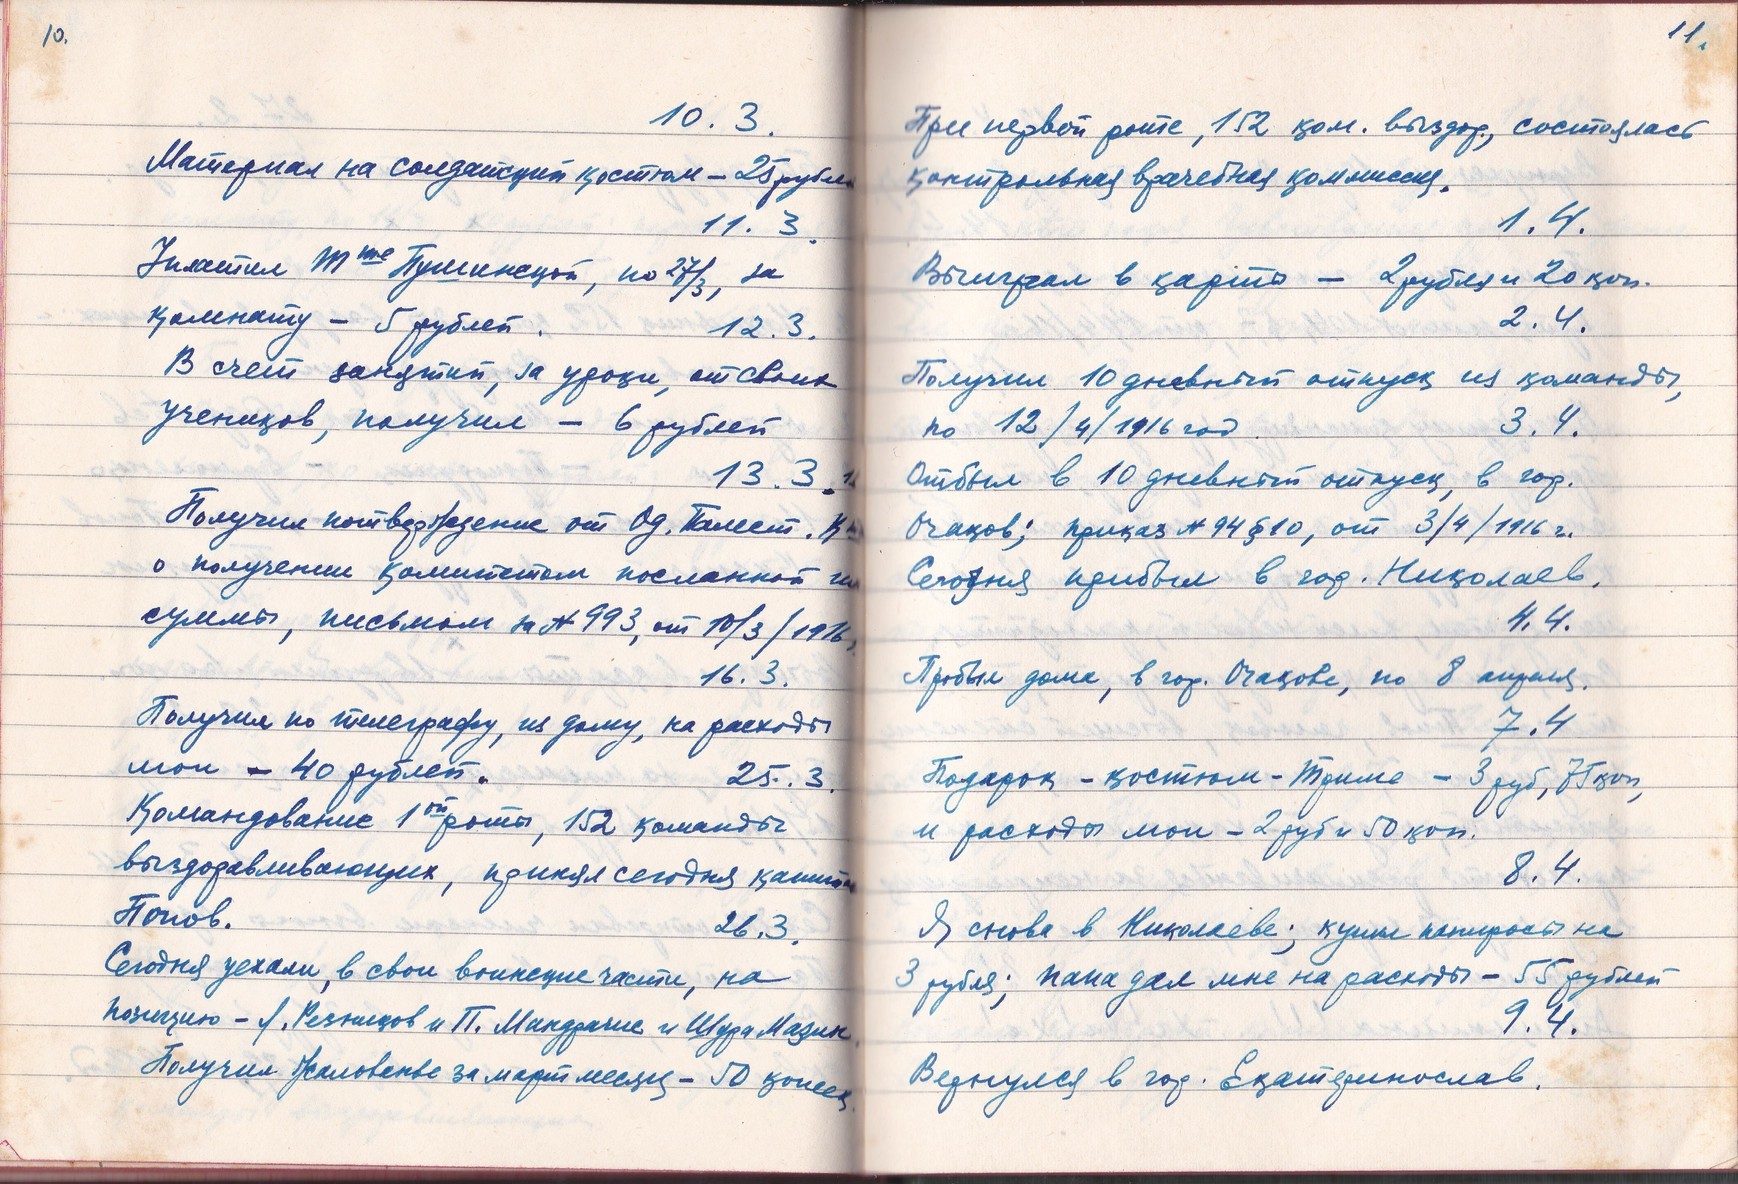 10.
10. 3.
Материал на солдатский костюм – 25 рубле
11. 3.
Уплатил Mme Пушинской, по 27/3, за
комнату – 5 рублей.
12. 3.
В счет занятий, за уроки, от своих
учеников, получил – 6 рублей
13. 3.
Получил потверждение от Од. Палест. К
о получении комитетом посланной
суммы, письмом за № 993, от 10/3/1916
16. 3.
Получил по телеграфу, из дому, на расходы
мои – 40 рублей.
25. 3.
Командование 1ой роты, 152 команды
выздоравливающих, принял сегодня капита
Попов.
26. 3.
Сегодня уехали, в свои воинские части, на
позицию – Резников и П. Мандраже и Шура Мазин.
Получил жалованье за март месяц – 50 копеек.
11.
При первой роте, 152 ком. выздор., состоялась
контрольная врачебная коммисия.
1. 4.
Выиграл в карты – 2 рубля и 20 коп.
2. 4.
Получил 10 дневный отпуск из команды,
по 12/4/1916 год.
3. 4.
Отбыл в 10 дневный отпуск, в гор.
Очаков; приказ № 94 § 10, от 3/4/1916 г.
Сегодня прибыл в гор. Николаев.
4. 4.
Пробыл дома, в гор. Очакове, по 8 апреля.
7. 4
Подарок – костюм – – 3 руб, 75 коп,
и расходы мои – 2 руб и 50 коп.
8. 4.
Я, снова в Николаеве; купил папиросы на
3 рубля; папа дал мне на расходы – 55 рублей
9. 4.
Вернулся в гор. Екатеринослав.